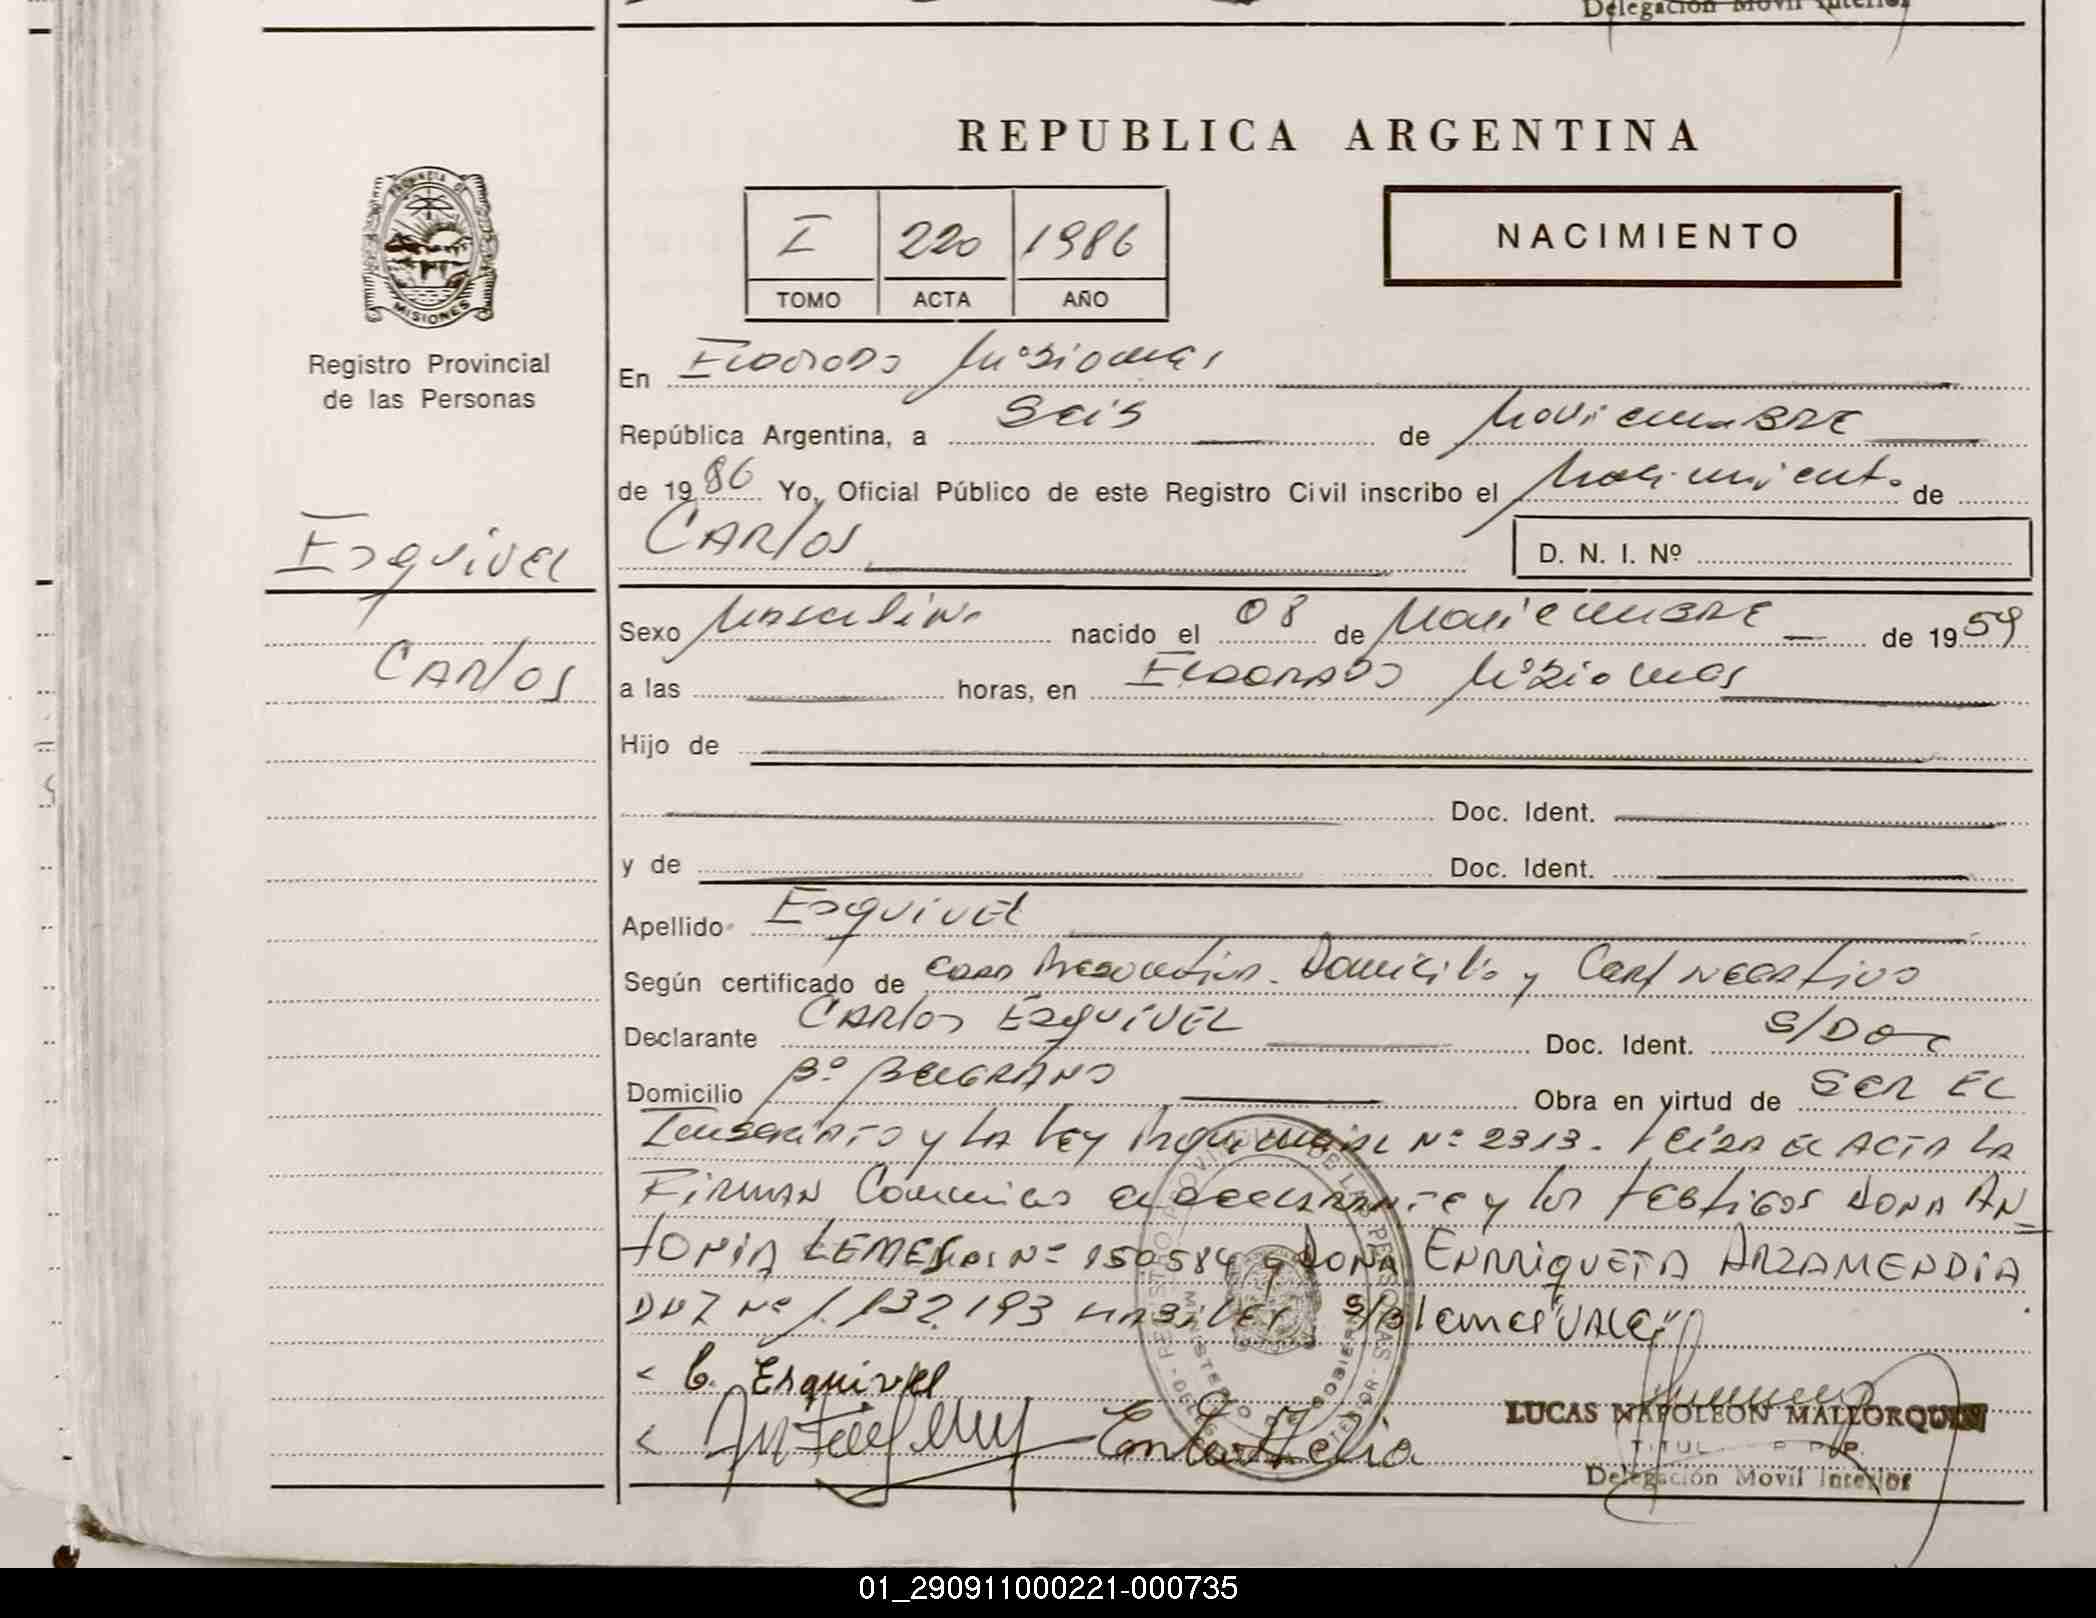 Delegación Movil Interior
REPUBLICA ARGENTINA
PROVINCIA DE
MISIONES
Registro Provincial
de las Personas
I 220 1986
TOMO ACTA AÑO
NACIMIENTO
En Eldorado Misiones
República Argentina, a Seis de Noviembre
de 1986 Yo, Oficial Público de este Registro Civil inscribo el Nacimiento de
Carlos
D. N. I. Nº
Esquivel
Carlos
Sexo Masculino nacido el 08 de Noviembre de 1959
a las horas, en Eldorado Misiones
Hijo de
Doc. Ident.
y de Doc. Ident.
Apellido Esquivel
Según certificado de Edad Presuntiva. Domicilio y Cert Negativo
Declarante Carlos Esquivel Doc. Ident. S/Doc
Domicilio Bº Belgrano Obra en virtud de Ser el
Inscripto y la Ley Provincial Nº 2313. Leida el Acta la
Firman Conmigo el declarante y los testigos dona An=
tonia Lemes Nº 150584 y dona Enrriqueta Arzamendia
DNI Nº 1.132.193 habiles S/B Lemes "Vale"
C. Esquivel
LUCAS NAPOLEON MALLORQUIN
Delegación Movil Interior
01_290911000221-000735